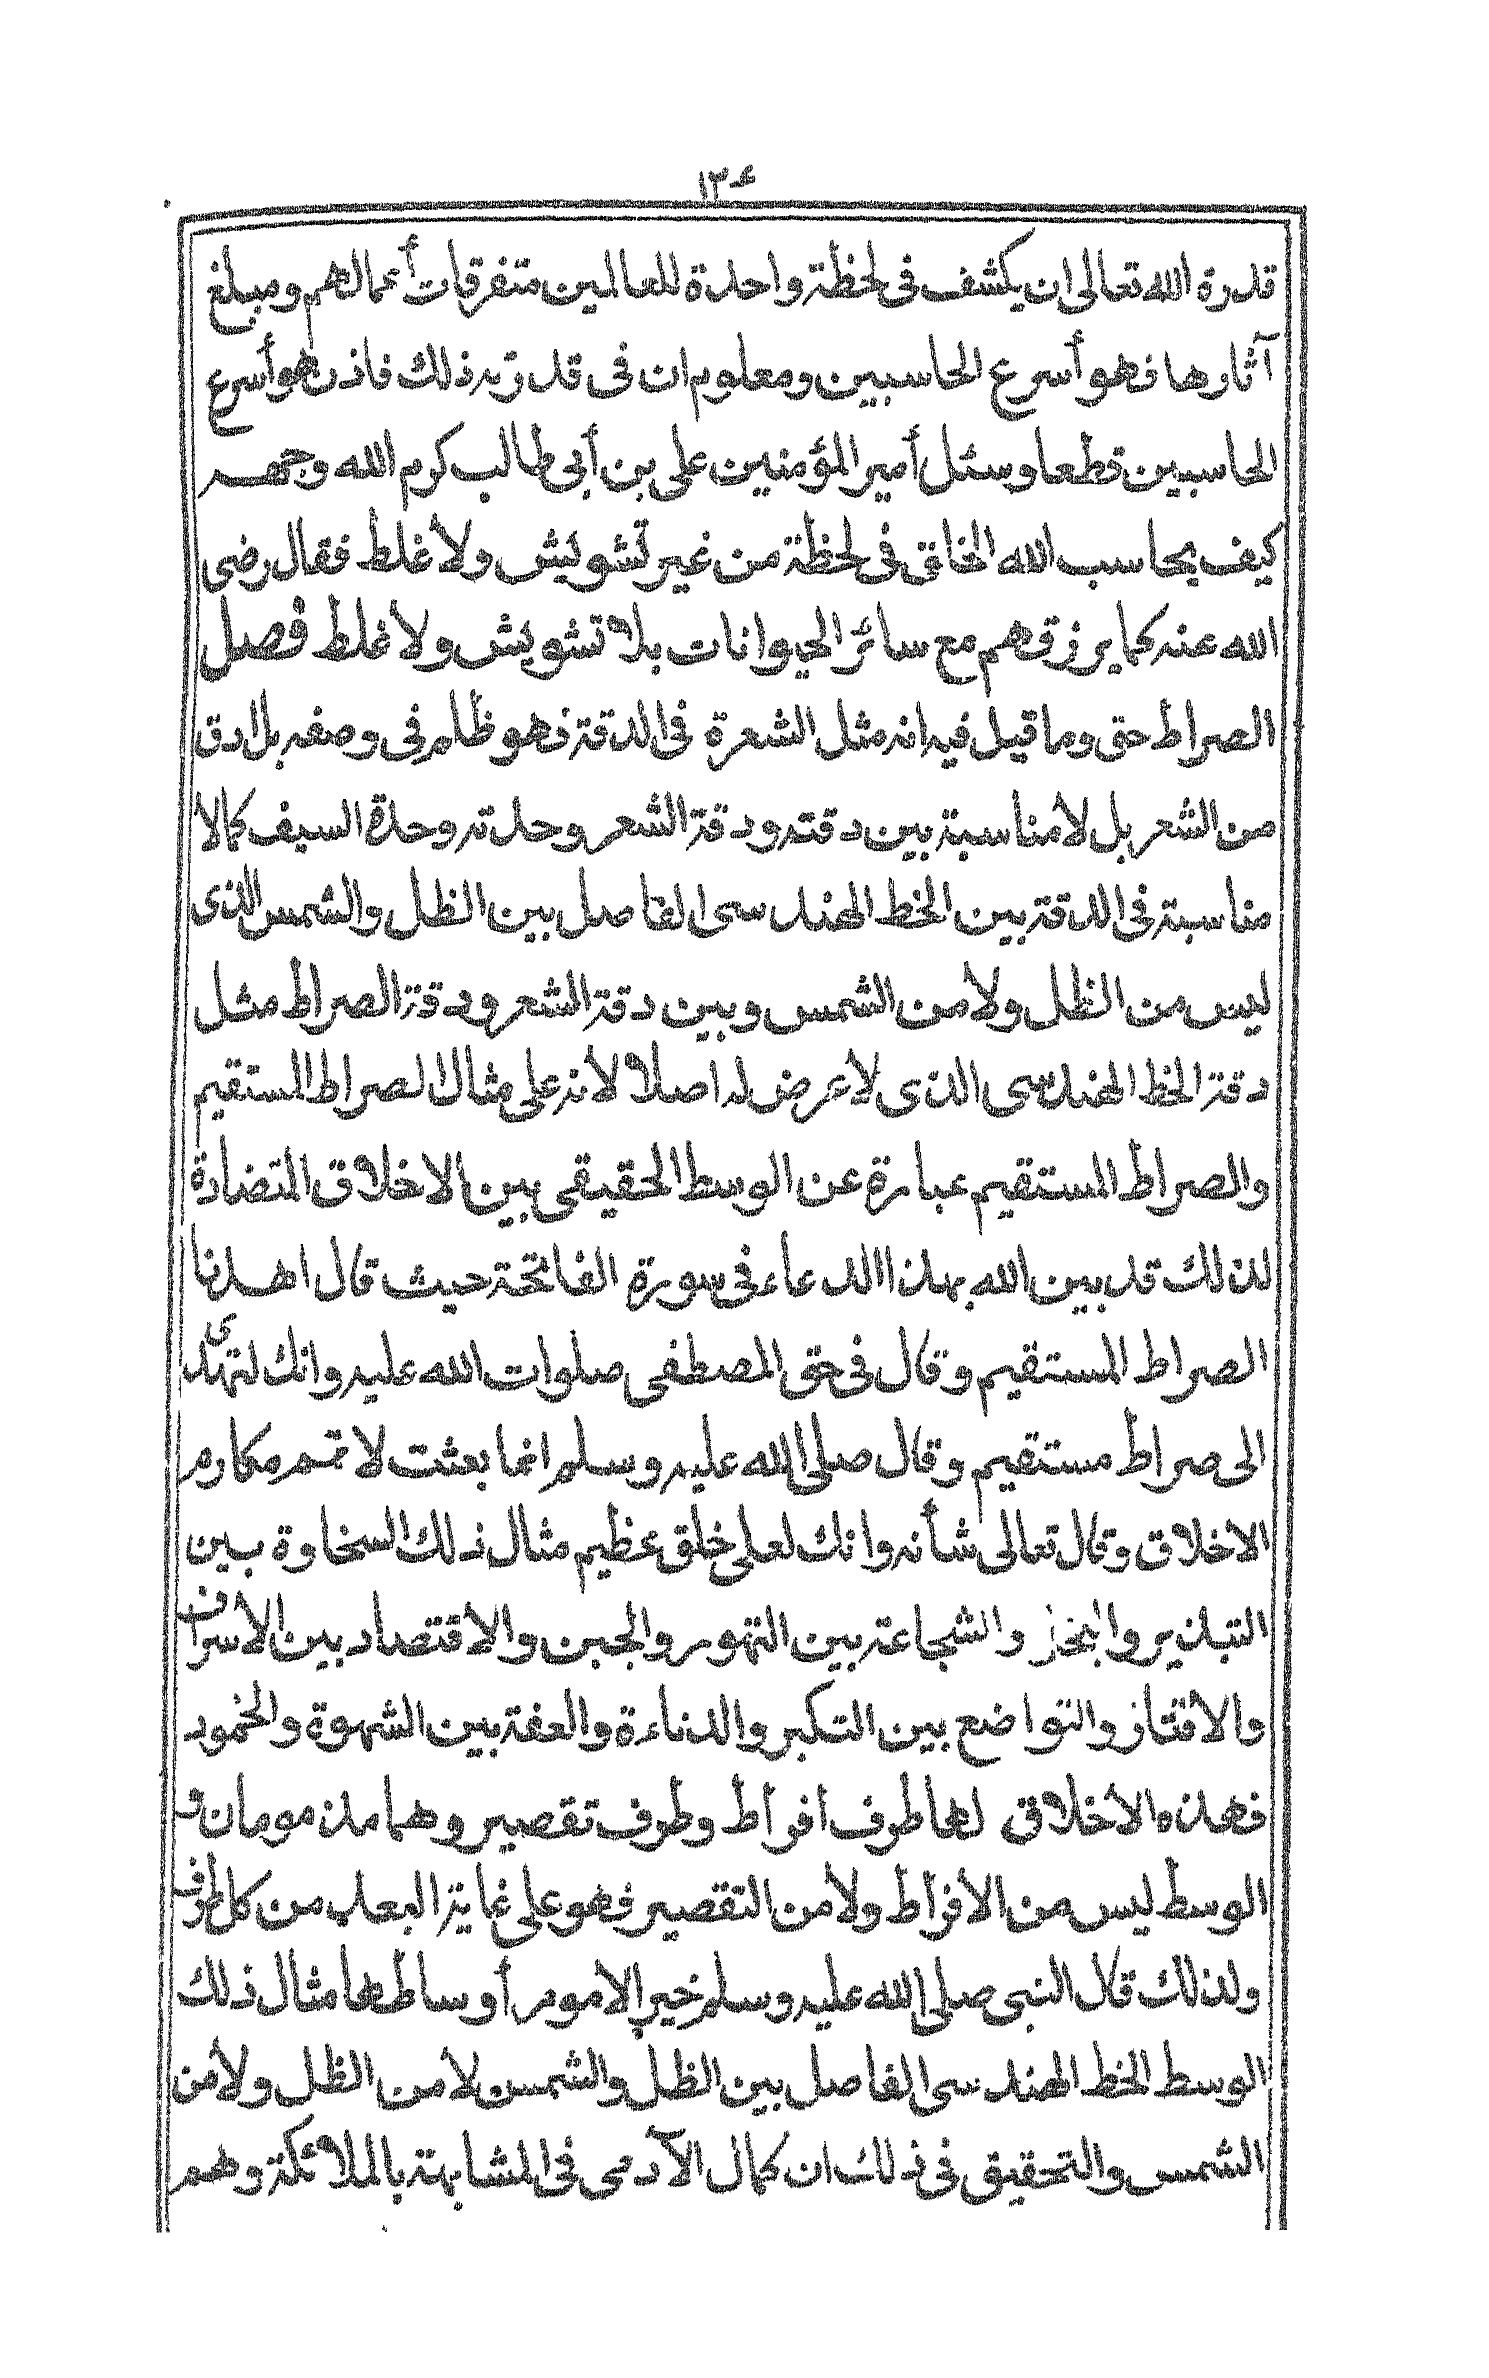 ١٣٤
قدرة الله تعالى ان يكشف فى لحظة واحدة للعالمين متفرقات أعمالهم ومبلغ
آثارها فهو أسرع الحاسبين ومعلوم ان فى قدرته ذلك فاذن هو أسرع
الحاسبين قطعا وسئل أمير المؤمنين على بن أبى طالب كرم الله وجهه
كيف يحاسب الله الخلق فى لحظة من غير تشويش ولا غلط فقال رضى
الله عنه كما يرزقهم مع سائر الحيوانات بلا تشويش ولا غلط فصل
الصراط حق وما قيل فيه انه مثل الشعرة فى الدقة فهو ظلم فى وصفه بل ادق
من الشعر بل لا مناسبة بين دقته ودقة الشعر وحدته وحدة السيف كما لا
مناسبة فى الدقة بين الخط الهندسى الفاصل بين الظل والشمس الذى
ليس من الظل ولا من الشمس وبين دقة الشعر ودقة الصراط مثل
دقة الخط الهندسى الذى لا عرض له اصلا لأنه على مثال الصراط المستقيم
والصراط المستقيم عبارة عن الوسط الحقيقى بين الاخلاق المتضادة
لذلك قد بين الله بهذا الدعاء فى سورة الفاتحة حيث قال اهدنا
الصراط المستقيم وقال فى حق المصطفى صلوات الله عليه وانك لتهدى
الى صراط مستقيم وقال صلى الله عليه وسلم انما بعثت لاتمم مكارم
الاخلاق وقال تعالى شأنه وانك لعلى خلق عظيم مثال ذلك السخاوة بين
التبذير والبخل والشجاعة بين التهور والجبن والاقتصاد بين الأسراف
والاقتار والتواضع بين التكبر والدناءة والعفة بين الشهوة والخمود
فهذه الأخلاق لها طرف افراط وطرف تقصير وهما مذمومان و
الوسط ليس من الأفراط ولا من التقصير فهو على غاية البعد من كل طرف
ولذلك قال النبى صلى الله عليه وسلم خير الامور أوساطها مثال ذلك
الوسط الخط الهندسى الفاصل بين الظل والشمس لا من الظل ولا من
الشمس والتحقيق فى ذلك ان كمال الآدمى فى المشابهة بالملائكة وهم